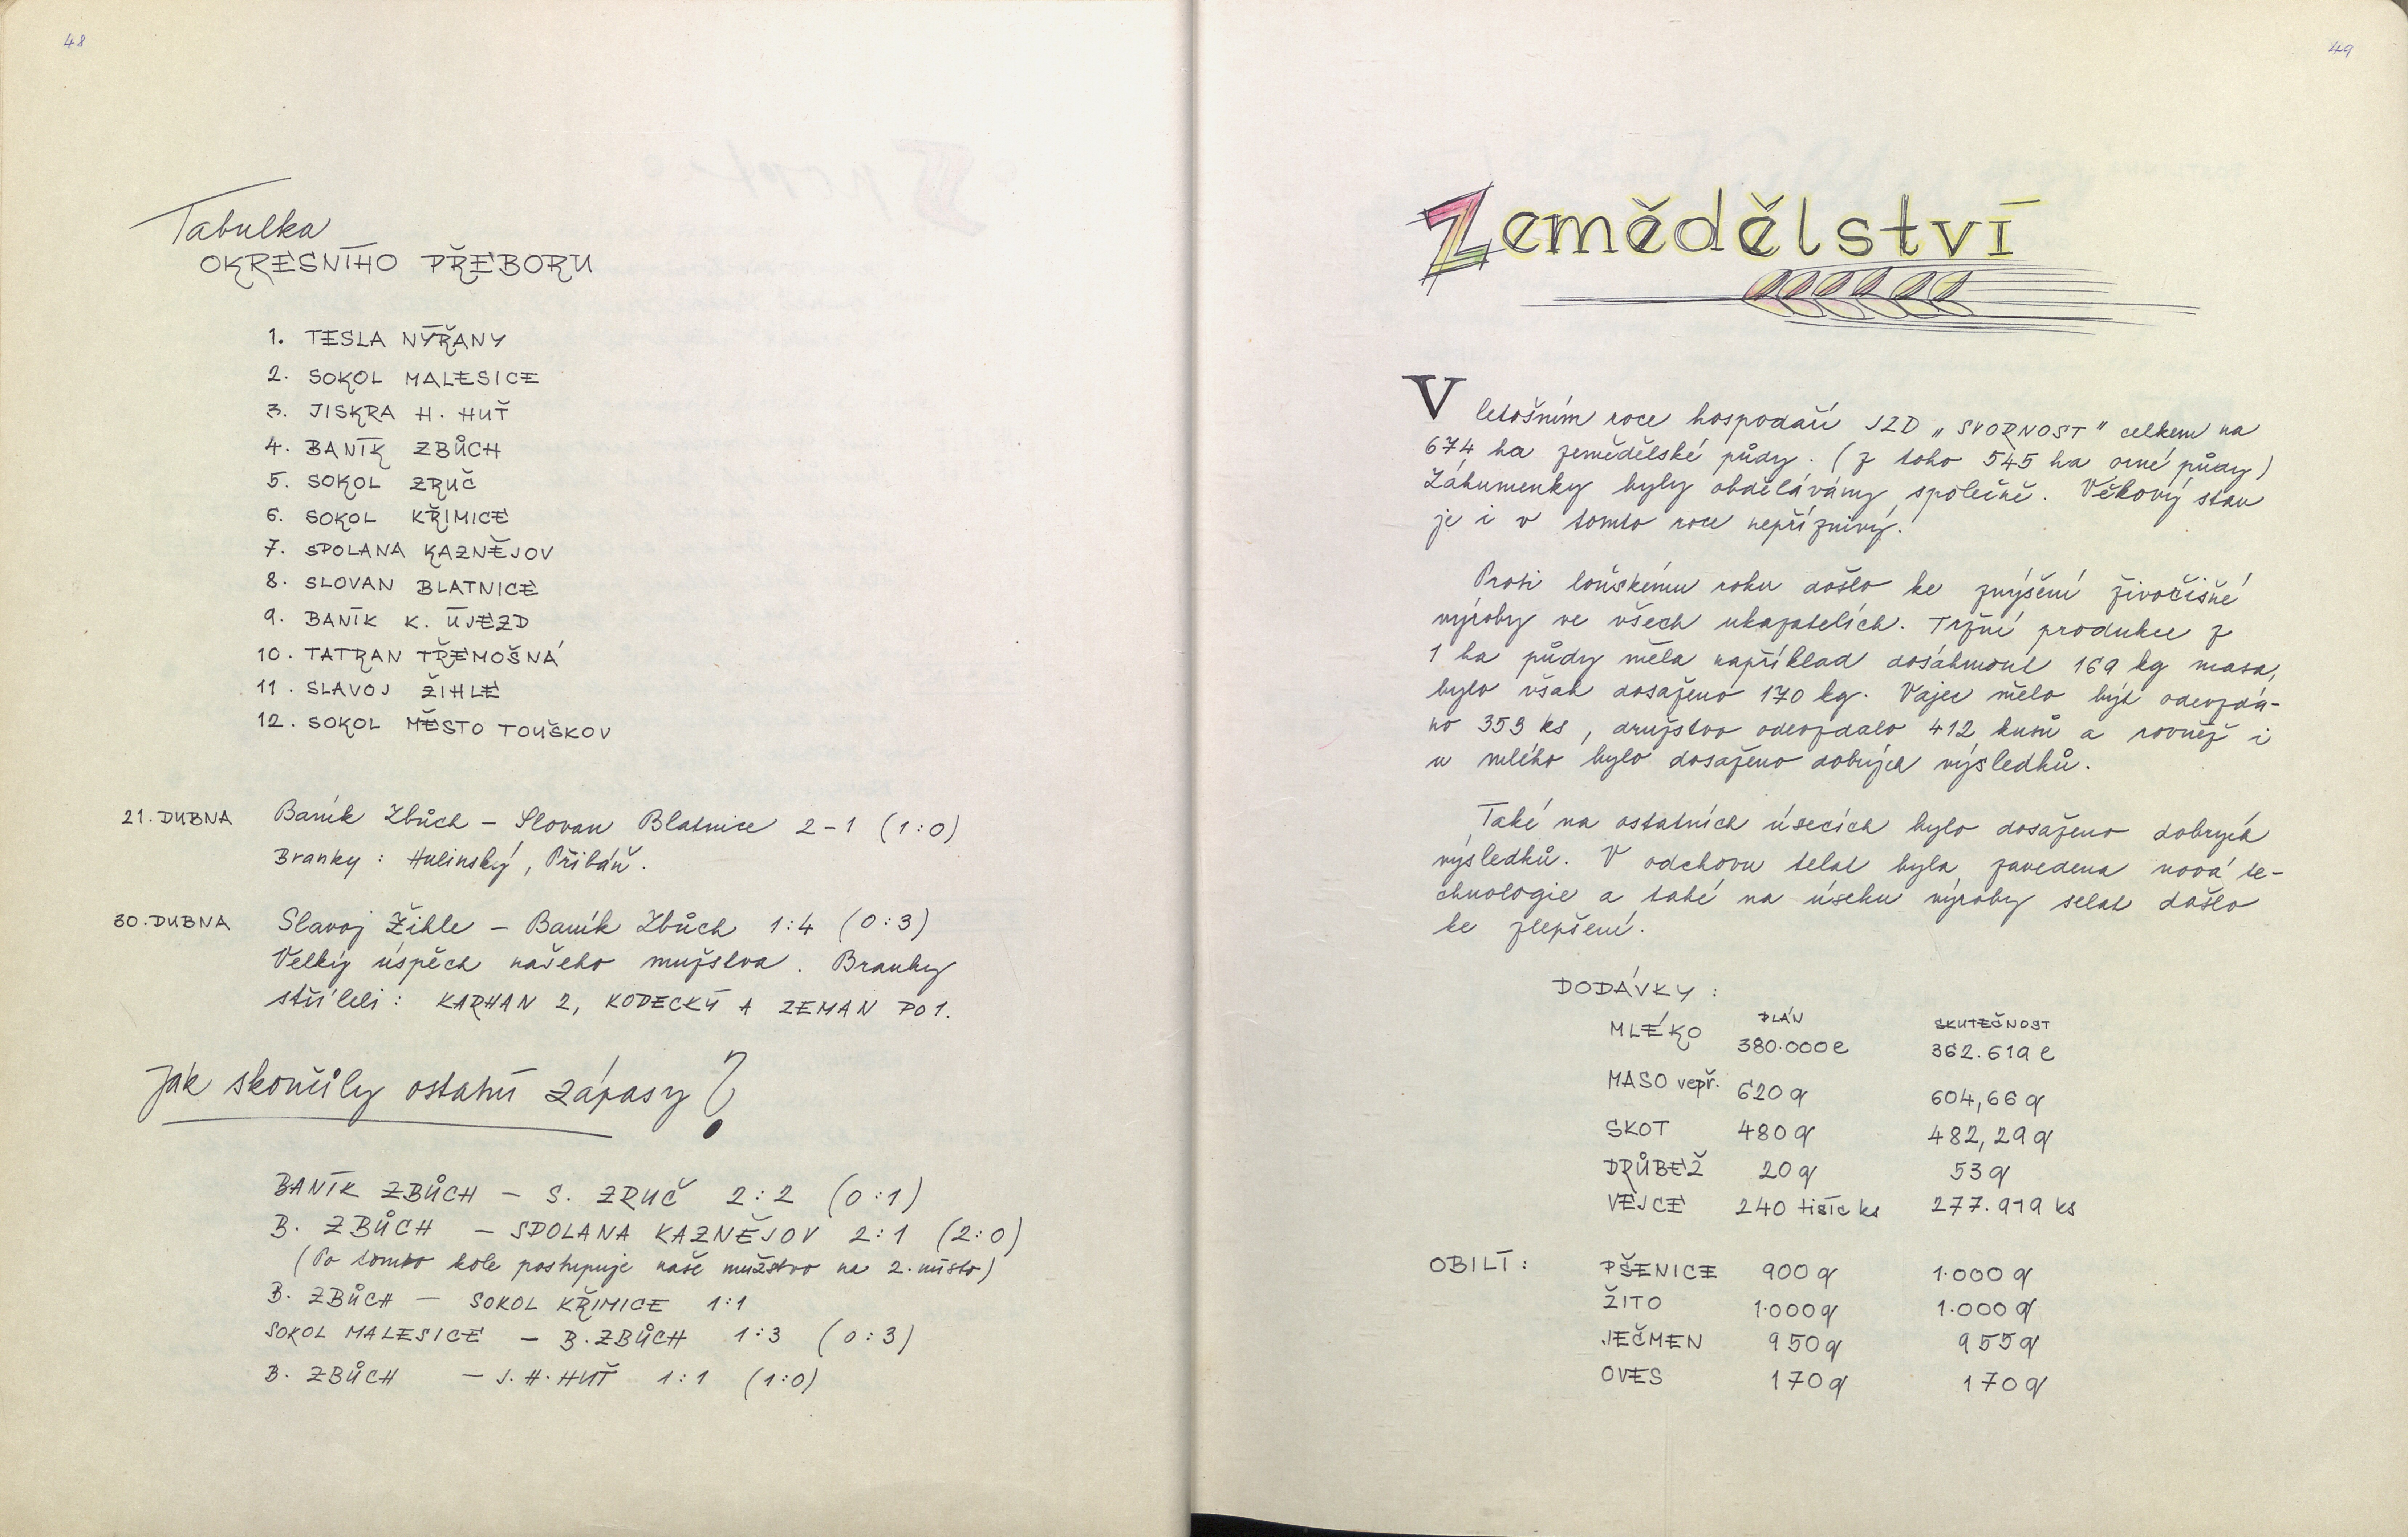 48
Tabulka
OKRESNÍHO PŘEBORU
1. TESLA NÝŘANY
2. SOKOL MALESICE
3. JISKRA H. HUŤ
4. BANÍK ZBŮCH
5. SOKOL ZRUČ
6. SOKOL KŘIMICE
7. SPOLANA KAZNĚJOV
8. SLOVAN BLATNICE
9. BANÍK K. ÚJEZD
10. TATRAN TŘEMOŠNÁ
11. SLAVOJ ŽIHLE
12. SOKOL MĚSTO TOUŠKOV
21. DUBNA Baník Zbůch – Slovan Blatnice 2-1 (1:0)
Branky: Hulinský, Přibáň.
30. DUBNA Slavoj Žihle – Baník Zbůch 1:4 (0:3)
Velký úspěch našeho mužstva. Branky
stříleli: KARHAN 2, KODECKÝ A ZEMAN PO 1.
Jak skončily ostatní zápasy?
BANÍK ZBŮCH – S. ZRUČ 2:2 (0:1)
B. ZBŮCH – SPOLANA KAZNĚJOV 2:1 (2:0)
(Po tomto kole postupuje naše mužstvo na 2. místo)
B. ZBŮCH – SOKOL KŘIMICE 1:1
SOKOL MALESICE – B. ZBŮCH 1:3 (0:3)
B. ZBŮCH – J. H. HUŤ 1:1 (1:0)
49
Zemědělství
V letošním roce hospodaří JZD „SVORNOST" celkem na
674 ha zemědělské půdy. (z toho 545 ha orné půdy)
Záhumenky byly obdělávány společně. Věkový stav
je i v tomto roce nepříznivý.
Proti loňskému roku došlo ke zvýšení živočišné
výroby ve všech ukazatelích. Tržní produkce z
1 ha půdy měla například dosáhnout 169 kg masa,
bylo však dosaženo 170 kg. Vajec mělo být odevzdá-
no 353 ks, družstvo odevzdalo 412 kusů a rovněž i
u mléka bylo dosaženo dobrých výsledků.
Také na ostatních úsecích bylo dosaženo dobrých
výsledků. V odchovu telat byla zavedena nová te-
chnologie a také na úseku výroby selat došlo
ke zlepšení.
DODÁVKY:
PLÁN SKUTEČNOST
MLÉKO 380.000 l 362.619 l
MASO vepř. 620 q 604,66 q
SKOT 480 q 482,29 q
DRŮBEŽ 20 q 53 q
VEJCE 240 tisíc ks 277.919 ks
OBILÍ: PŠENICE 900 q 1.000 q
ŽITO 1.000 q 1.000 q
JEČMEN 950 q 955 q
OVES 170 q 170 q